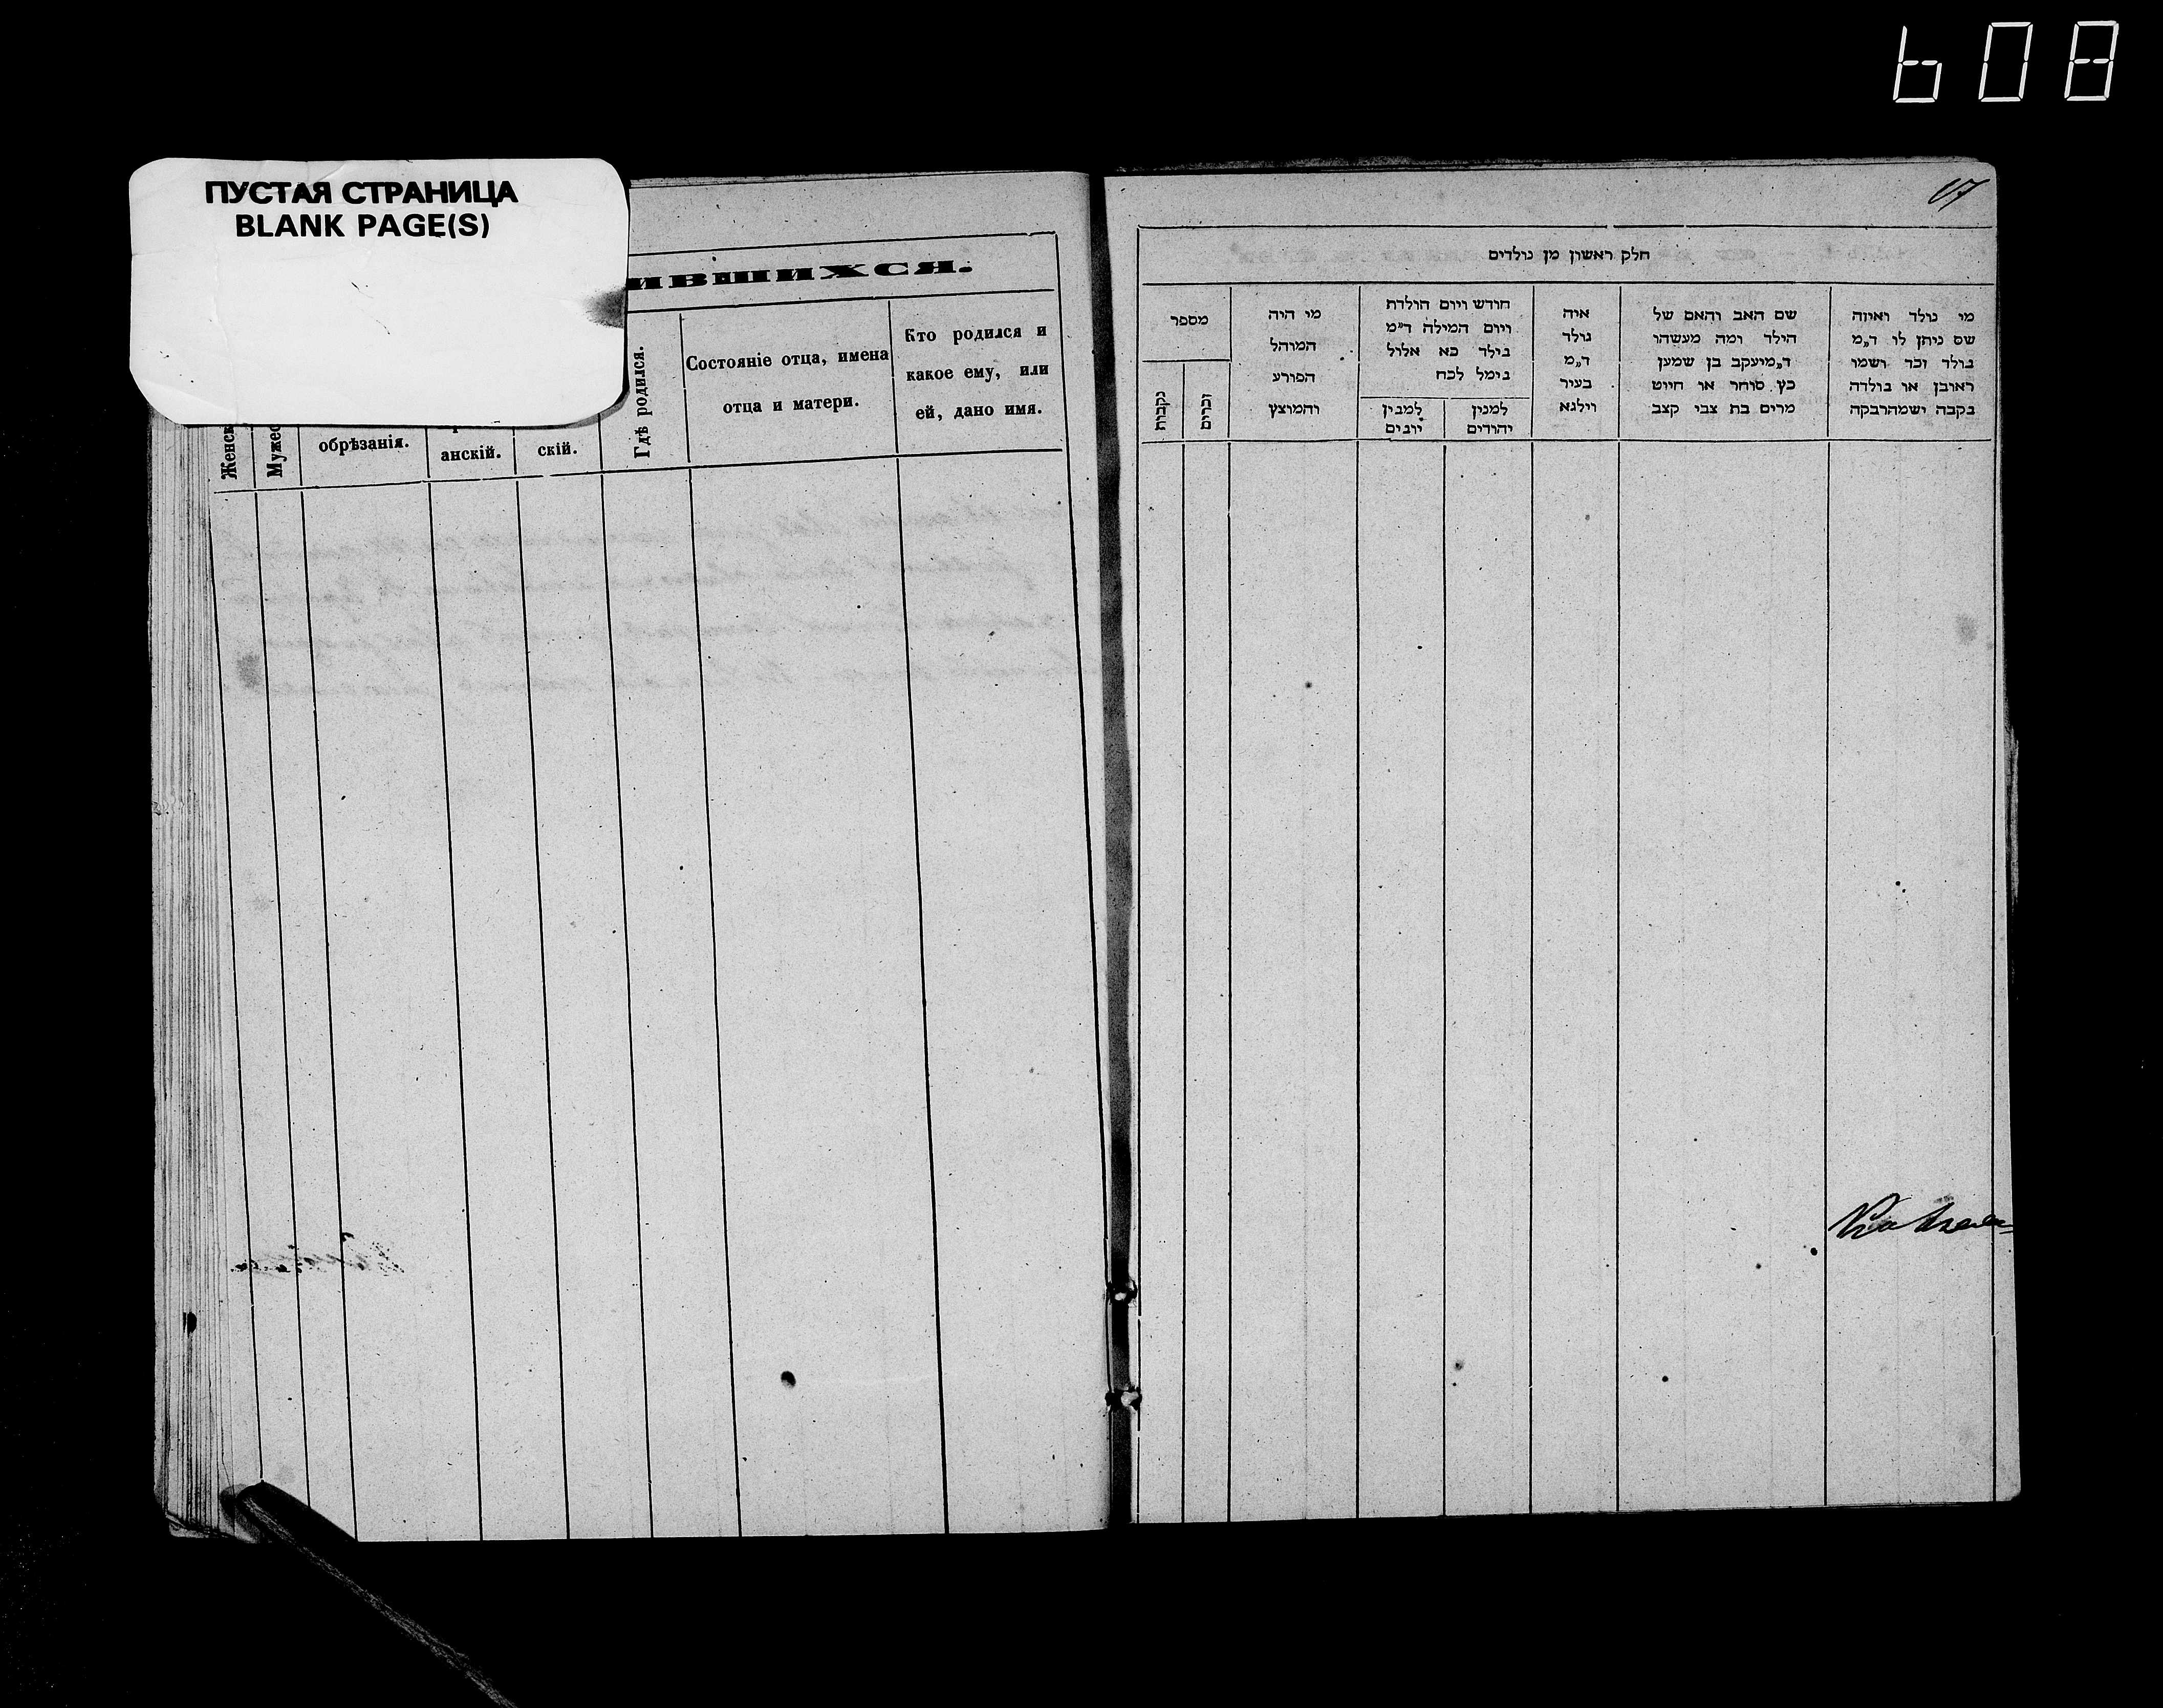 608
ПУСТАЯ СТРАНИЦА
BLANK PAGE(S)
ИВШИХСЯ.
Женск
Мужес
обрѣзанія.
анскій.
скій.
Гдѣ родился.
Состояніе отца, имена
отца и матери.
Кто родился и
какое ему, или
ей, дано имя.
17
חלק ראשון מן נולדים
מספר
נקבות
זכרים
מי היה
המוהל
הפורע
והמוצץ
חודש ויום הולדת
ויום המילה ד״מ
נילד כא אלול
נימל לכח
למנין
יונים
למנין
יהודים
איה
נולד
ד״מ
בעיר
ווילנא
שם האב והאם של
הילד ומה מעשהו
ד״מ יעקב בן שמען
כץ סוחר או חייט
מרים בת צבי קצב
מי נולד ואיזה
שם ניתן לו ד״מ
נולד זכר ושמו
ראובן או נולדה
נקבה ישמה רבקה